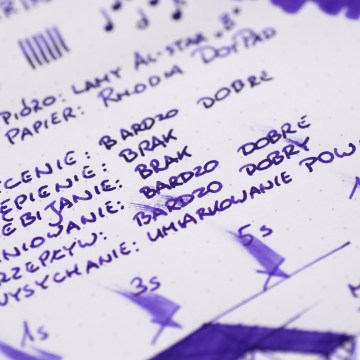 PIÓRO: LAMY AL-STAR „B"
PAPIER: RHODIA DOTPAD
CENIE: BARDZO DOBRE
ĘPIENIE: BRAK
EBIJANIE: BRAK
NIOWANIE: BARDZO DOBRE
RZEPŁYW: BARDZO DOBRY
WYSYCHANIE: UMIARKOWANIE POW
1s
3s
5s